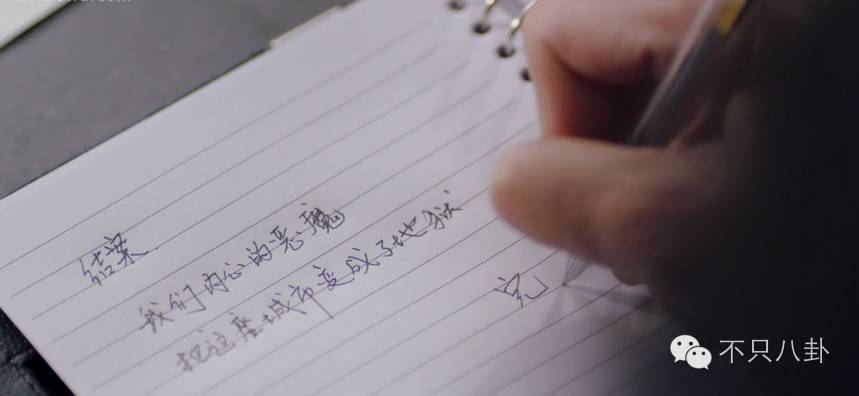 结案.
我们内心的恶魔
把这座城市变成了地狱
完
不只八卦